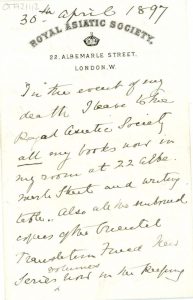 30th April 1897
ROYAL ASIATIC SOCIETY,
22, ALBEMARLE STREET,
LONDON. W.
In the event of my
death I leave to the
Royal Asiatic Society
all my books now in
my room at 22 Albe-
marle Street and writing
table. Also all the unbound
copies of the Oriental
Translation Fund New
Series volumes now in the keeping